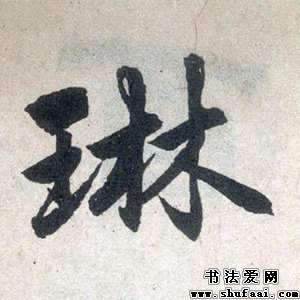 琳
书法爱网
www.shufaai.com